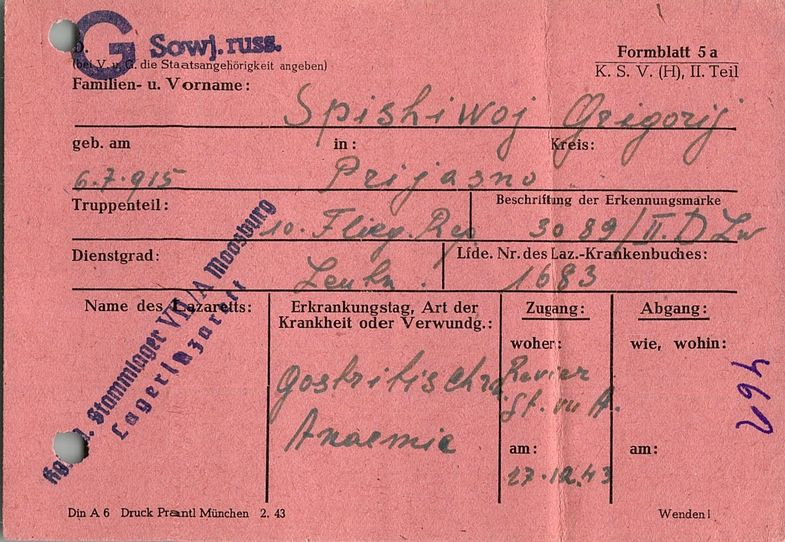 G Sowj. russ.
(bei V. u. G. die Staatsangehörigkeit angeben)
Formblatt 5 a
K. S. V. (H), II. Teil
Familien- u. Vorname:
Spishiwoj Grigorij
geb. am in: Kreis:
6.7.915 Prijasno
Truppenteil: Beschriftung der Erkennungsmarke
10. Flieg. Reg 3089/II.D Lw
Dienstgrad: Lfde. Nr. des Laz.-Krankenbuches:
Leutn. 1683
Name des Lazaretts:
Stammlager VII/A Moosburg
Lagerlazarett
Erkrankungstag, Art der
Krankheit oder Verwundg.:
Anaemie
Zugang:
woher:
Revier
am:
17.12.43
Abgang:
wie, wohin:
am:
462
Din A 6 Druck Prantl München 2. 43
Wenden!